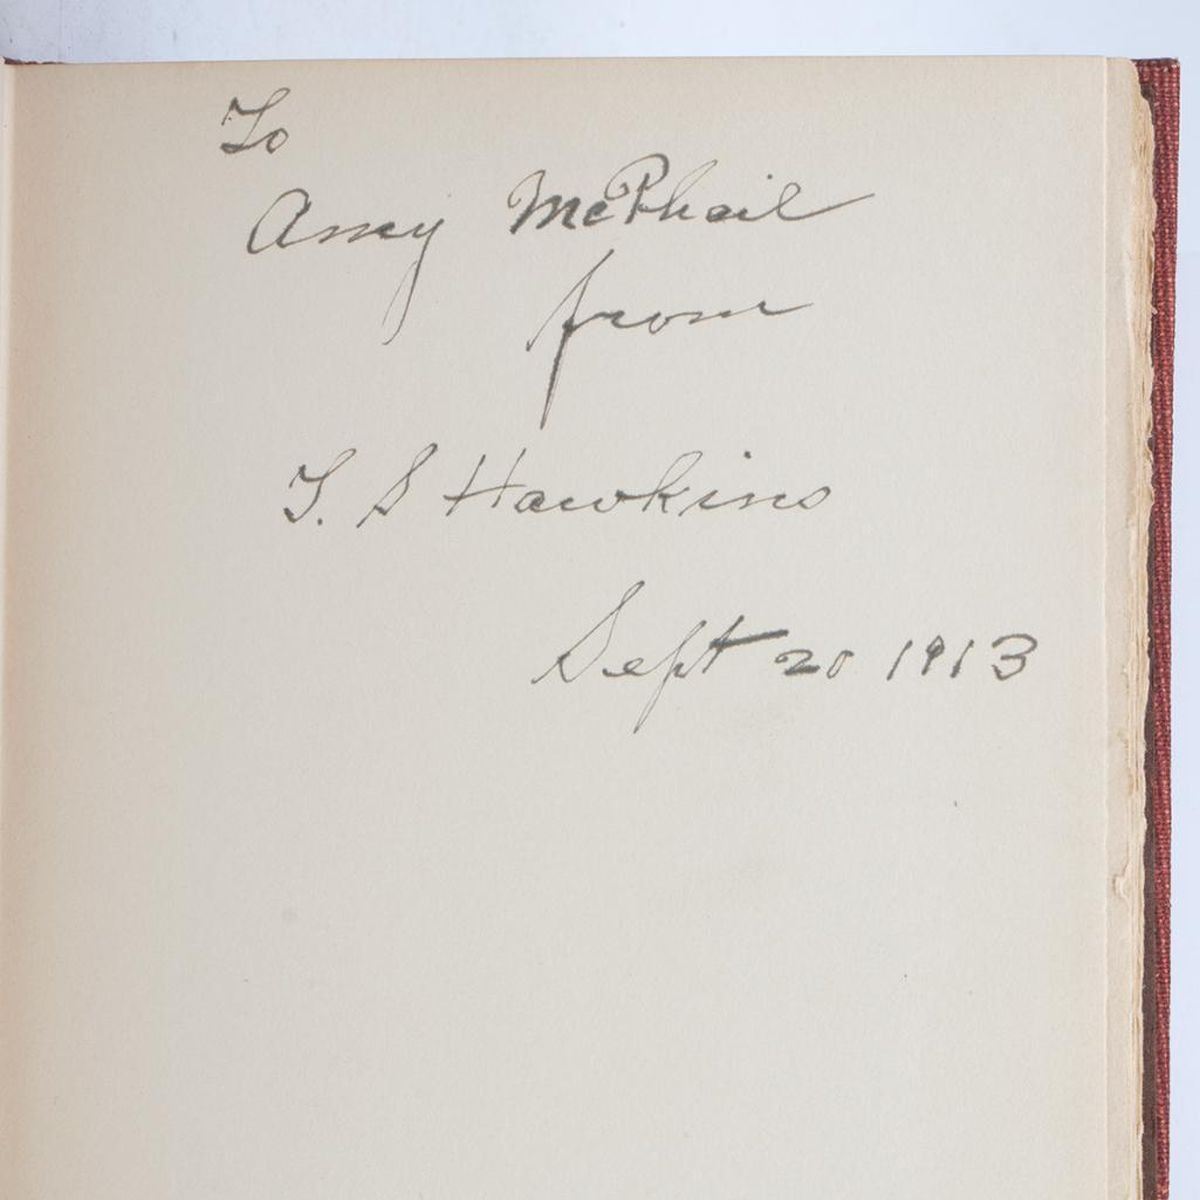 To
Amy McPhail
from
T. S Hawkins
Sept 20 1913